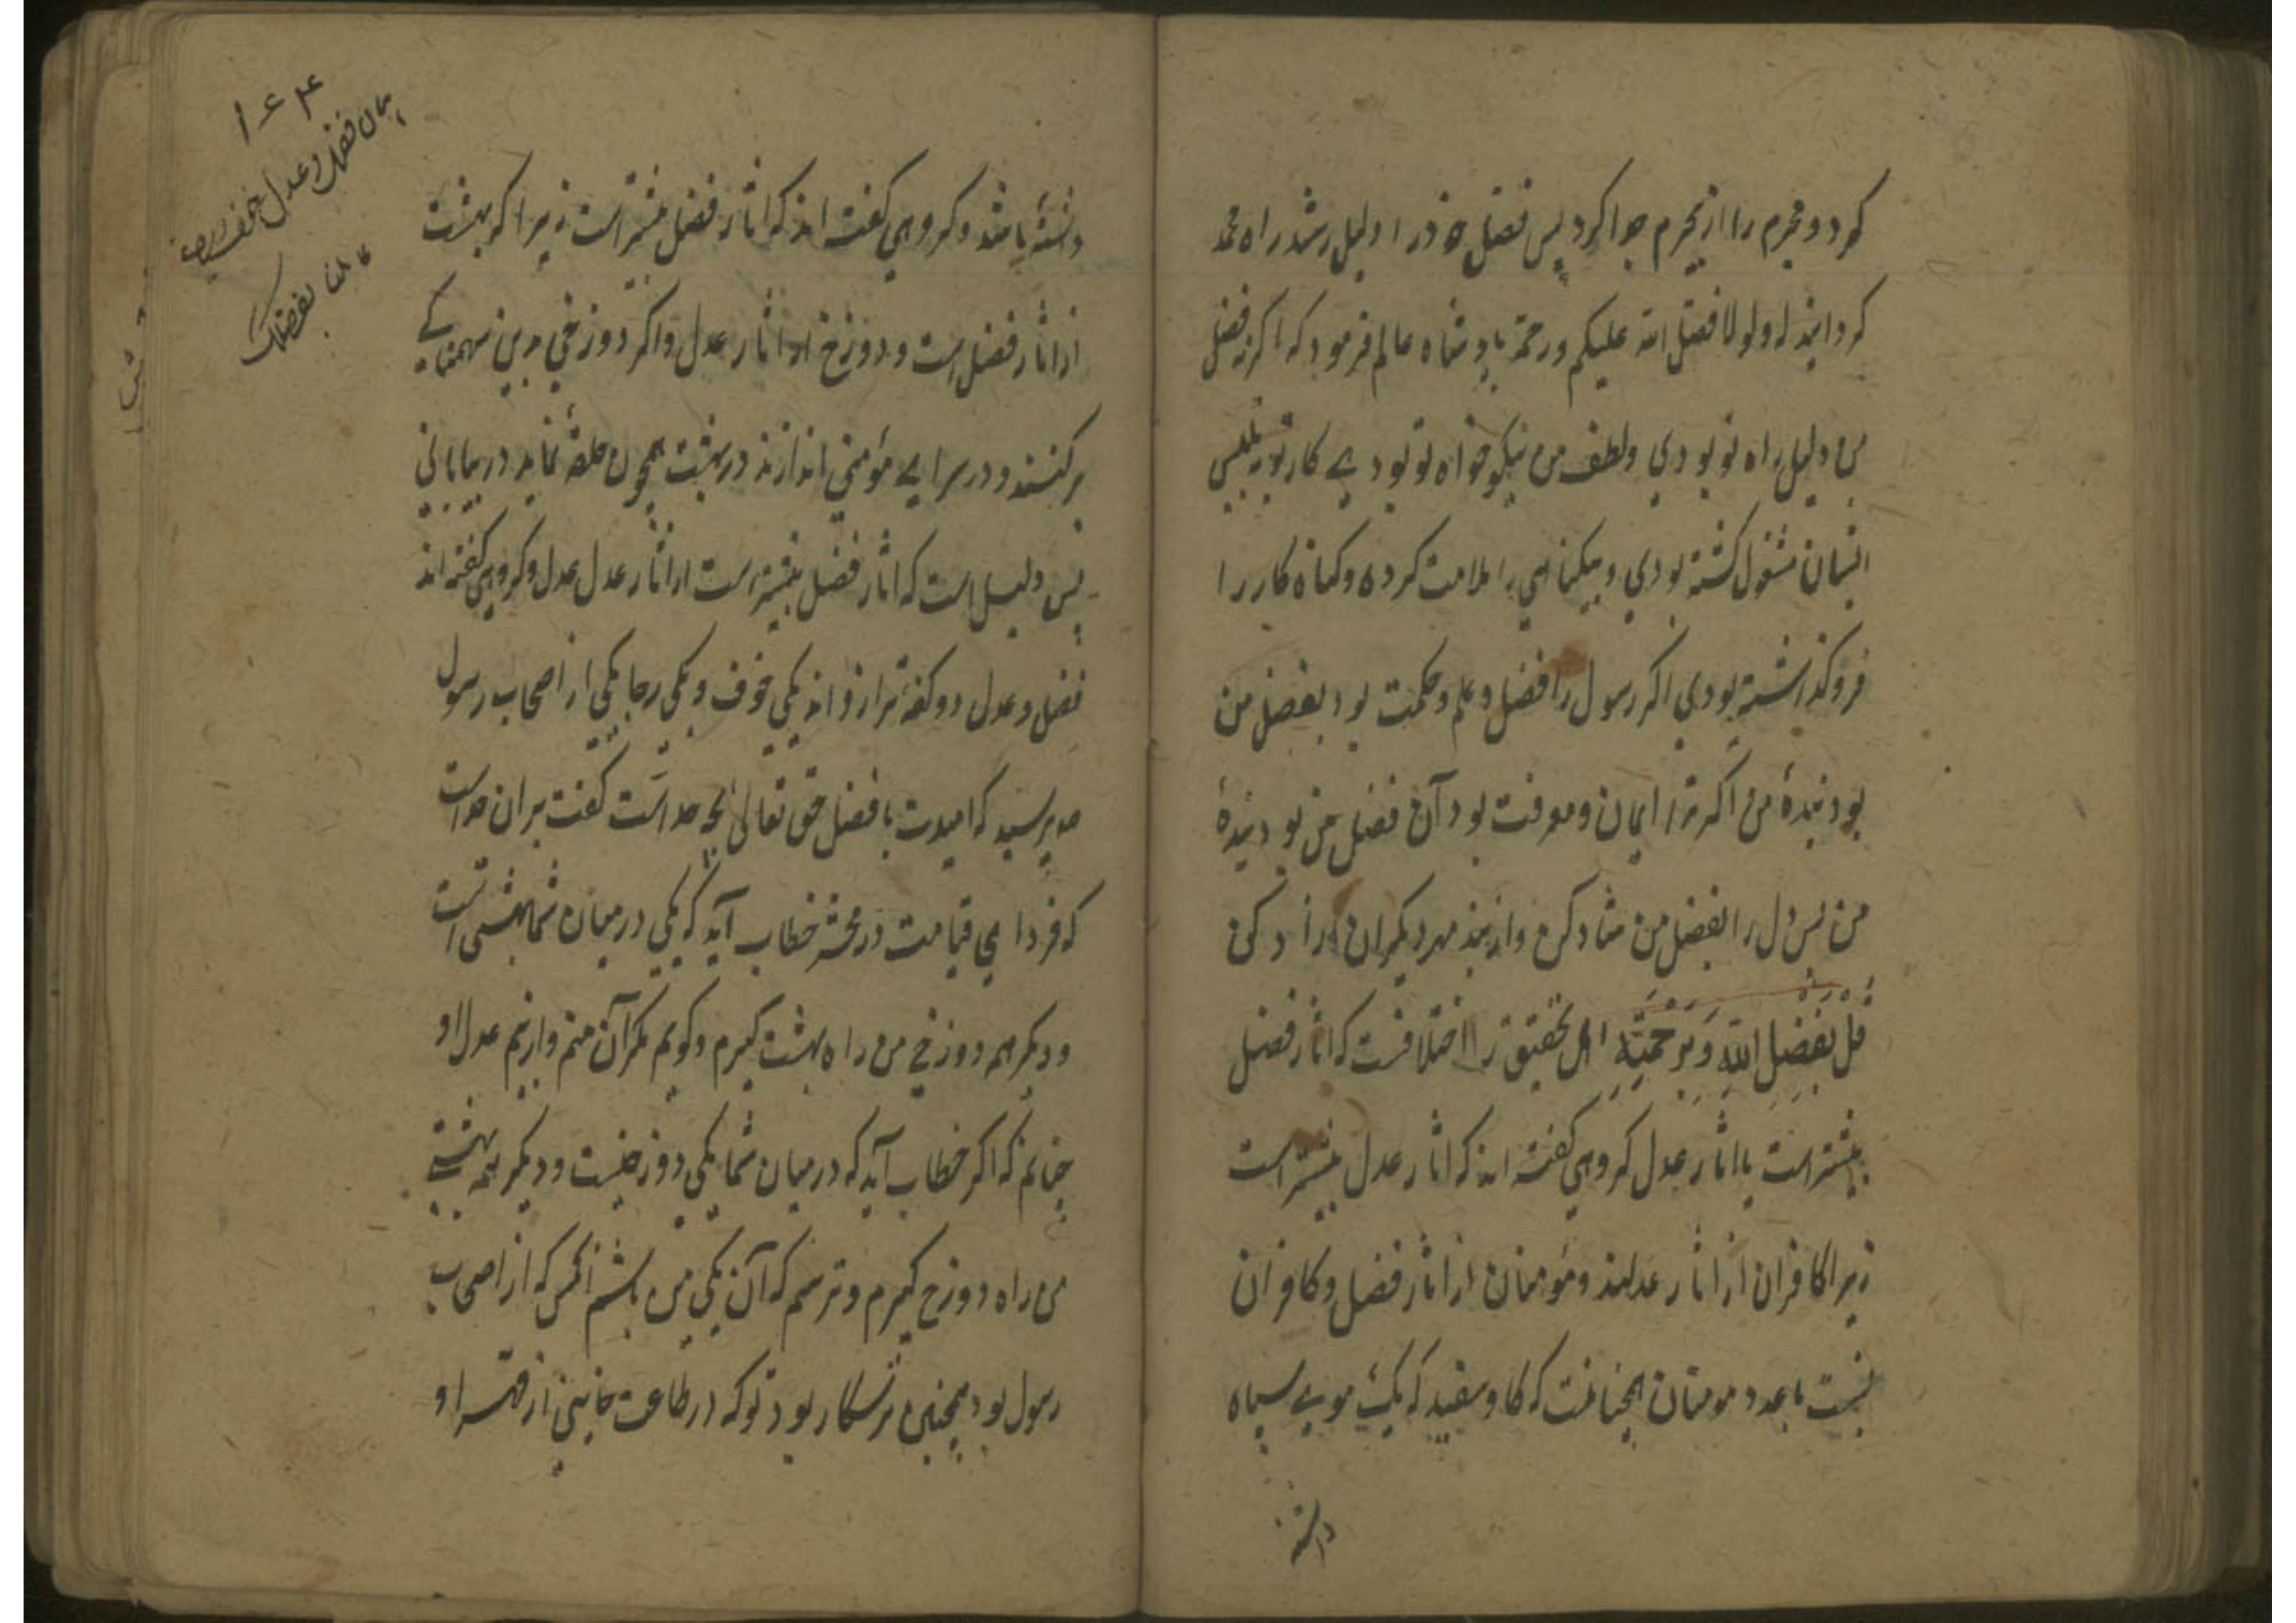 کرد و مجرم را از محرم جدا کرد پس فضل خود را دلیل رشد راه محمد
کردانید که ولولا فضل الله علیکم ورحمته بادشاه عالم فرمود که اکر نه فضل
من دلیل راه تو بودی ولطف من نیکو خواه تو بودی کار تو بتلبیس
ایشان مشغول کشته بودی و بیکناهی را ملامت کرده و کناه کار را
فرو کذاشته بودی اکر رسول را فضل و علم و حکمت بود بفضل من
بود بندهٔ من اکر ترا ایمان و معرفت بود آن فضل من بود بندهٔ
من پس دل را بفضل من شاد کن و از بند مهر دیکران آزاد کن
قُلْ بِفَضْلِ اللَّهِ وَبِرَحْمَتِهِ اهل تحقیق را اختلافست که اثار فضل
بیشتر است یا اثار عدل کروهی کفته اند که اثار عدل بیشتر است
زیرا کافران از اثار عدلند و مؤمنان از اثار فضل و کافران
نسبت با عدد مومنان همچنانست که کاو سفید که یک موی سیاه
داشته
داشتهٔ باشد و کروهی کفته اند که اثار فضل بیشتر است زیرا که بهشت
از اثار فضل است و دوزخ از اثار عدل و اکر دوزخی بدین سهمناکی
برکنند و در سرای مؤمنی اندازند در بهشت همچون حلقهٔ نماید در بیابانی
پس دلیل است که اثار فضل بیشتر است از اثار عدل عدل و کروهی کفته اند
فضل و عدل دو کفهٔ ترازو اند یکی خوف و یکی رجا یکی از اصحاب رسول
پرسید که امیدت با فضل حق تعالی بچه حد است کفت بران حد است
که فردای قیامت در محشر خطاب آید که یکی در میان شما بهشتی است
و دیکر همه دوزخی من راه بهشت کیرم و کویم مکر آن منم و از بیم عدل او
چنانم که اکر خطاب آید که در میان شما یکی دوزخیست و دیکر همه بهشتی
من راه دوزخ کیرم و ترسم که آن یکی من باشم انکس که از اصحاب
رسول بود همچنین ترسکار بود تو که در طاعت خاینی از قهر او
۱۶۴
بیان فضل و عدل
بفضلک